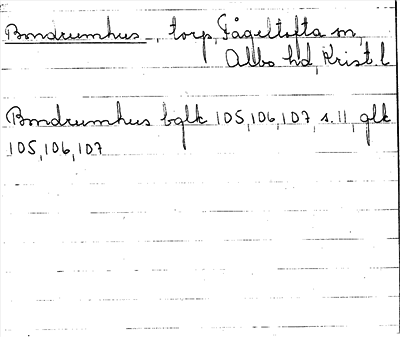 Bondrumhus, torp, Fågeltofta sn,
Albo hd, Krist. l
Bondrumhus bglk 105, 106, 107, s. 11, glk
105, 106, 107